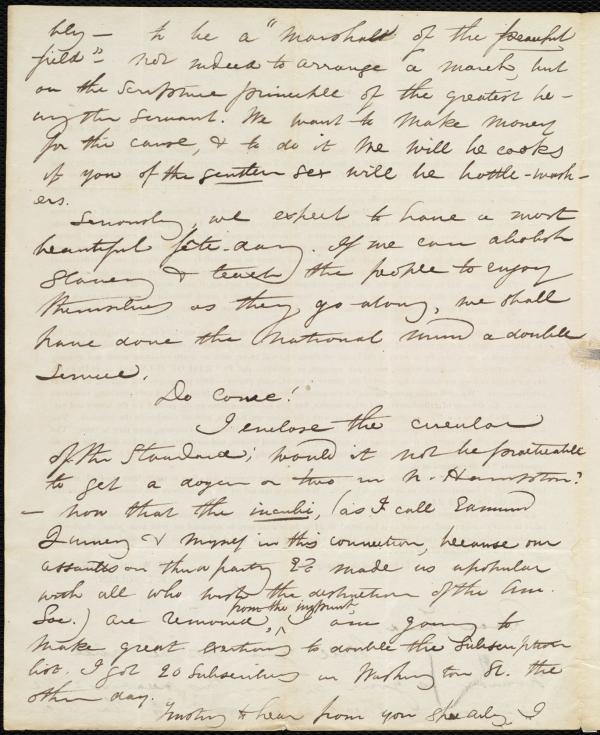 bly — to be a "Marshall of the peaceful
field" — not indeed to arrange a march, but
on the Scripture principle of the greatest be-
ing the Servant. We want to make money
for the cause, & to do it we will be cooks
if you of the gentler sex will be bottle-wash-
ers.
Seriously, we expect to have a most
beautiful fête-day. If we can abolish
Slavery & teach the people to enjoy
themselves as they go along, we shall
have done the National mind a double
service.
Do come!
I enclose the circular
of the Standard; would it not be practicable
to get a dozen or two in N. Hampton?
— now that the incubi, (as I call Edmund
Quincy & myself in this connection, because our
assaults on third party &c made us unpopular
with all who wish the destruction of the Am.
Soc.) are removed, from the imprint, I am going to
make great exertions to double the Subscription
list. I got 20 Subscribers in Washington St. the
other day.
Trusting to hear from you speedily, I